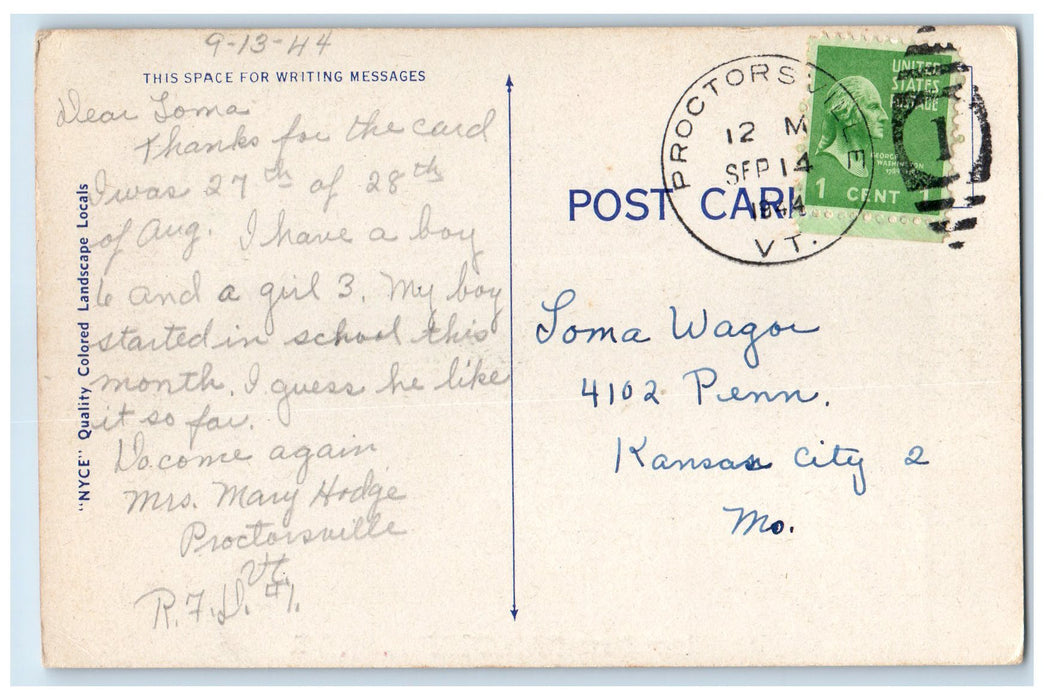 9-13-44
THIS SPACE FOR WRITING MESSAGES
Dear Loma
Thanks for the card
I was 27th of 28th
of Aug. I have a boy
6 and a girl 3. My boy
started in school this
month. I guess he like
it so far.
Do come again
Mrs. Mary Hodge
Proctorsville
Vt.
R.F.D. #1.
"NYCE" Quality Colored Landscape Locals
POST CARD
PROCTORSVILLE
12 M
SEP 14
1944
VT.
UNITED
STATES
POSTAGE
GEORGE
WASHINGTON
1 CENT
1
Loma Wagor
4102 Penn.
Kansas City 2
Mo.